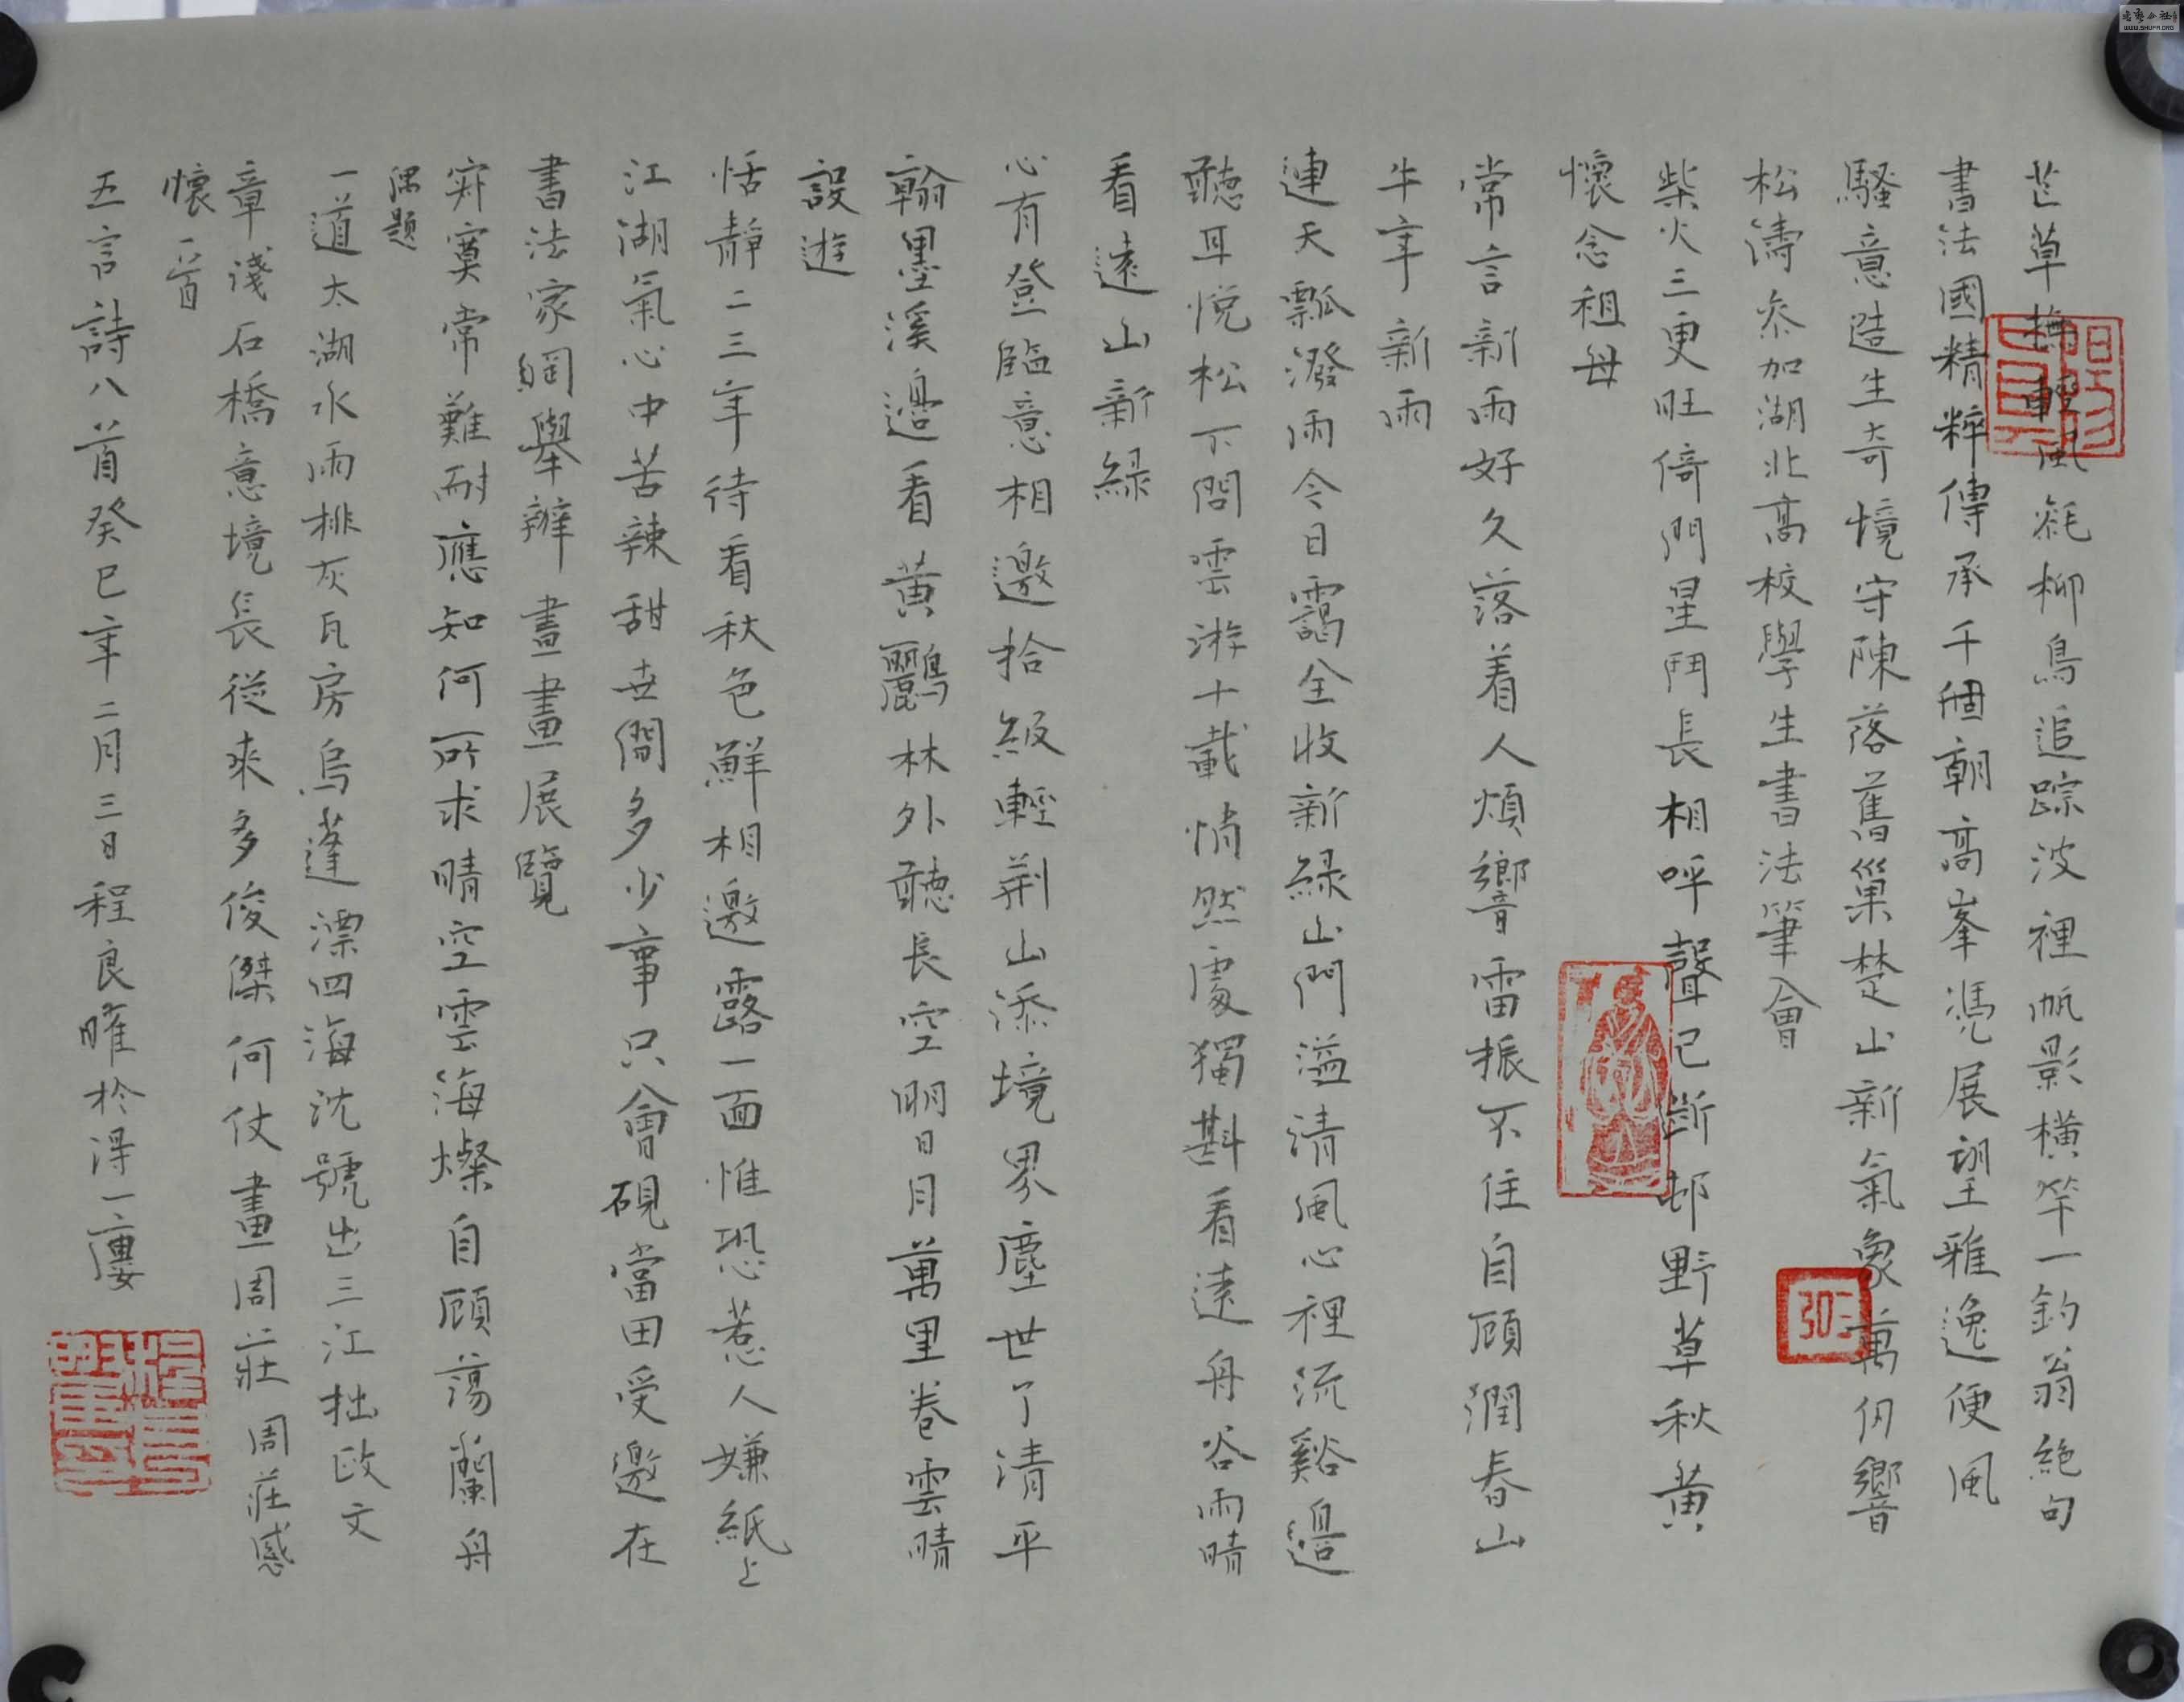 芒草撫輕風毵柳鳥追踪波裡帆影橫竿一釣翁絶句
書法國精粹傳承千個朝高峯馮展望雅逸便風
騷意造生奇境守陳落舊巢楚山新氣象萬仞響
松濤參加湖北高校學生書法筆會
柴火三更旺倚門星鬥長相呼聲已斷邨野草秋黄
懷念祖母
常言新雨好久落着人煩響雷振不住自顧潤春山
牛年新雨
連天瓢潑雨今日靄全收新緑山門溢清風心裡流谿邊
聽耳悦松下問雲游十載悄然處獨斟看遠舟谷雨晴
看遠山新緑
心有登臨意相邀拾級輕荆山添境界塵世了清平
翰墨溪邊看黄鸝林外聽長空明日月萬里卷雲晴
設遊
恬靜二三年待看秋色鮮相邀露一面惟恐惹人嫌紙上
江湖氣心中苦辣甜世間多少事只會硯當田受邀在
書法家網舉辦書畫展覽
寂寞常難耐應知何所求晴空雲海燦自顧蕩蘭舟
偶題
一道太湖水兩排灰瓦房烏蓬漂四海沈號出三江拙政文
章淺石橋意境長從來多俊傑何仗畫周莊周莊感
懷一首
五言詩八首癸巳年二月三日程良曜於淂一廔
WWW.SHUFA.ORG